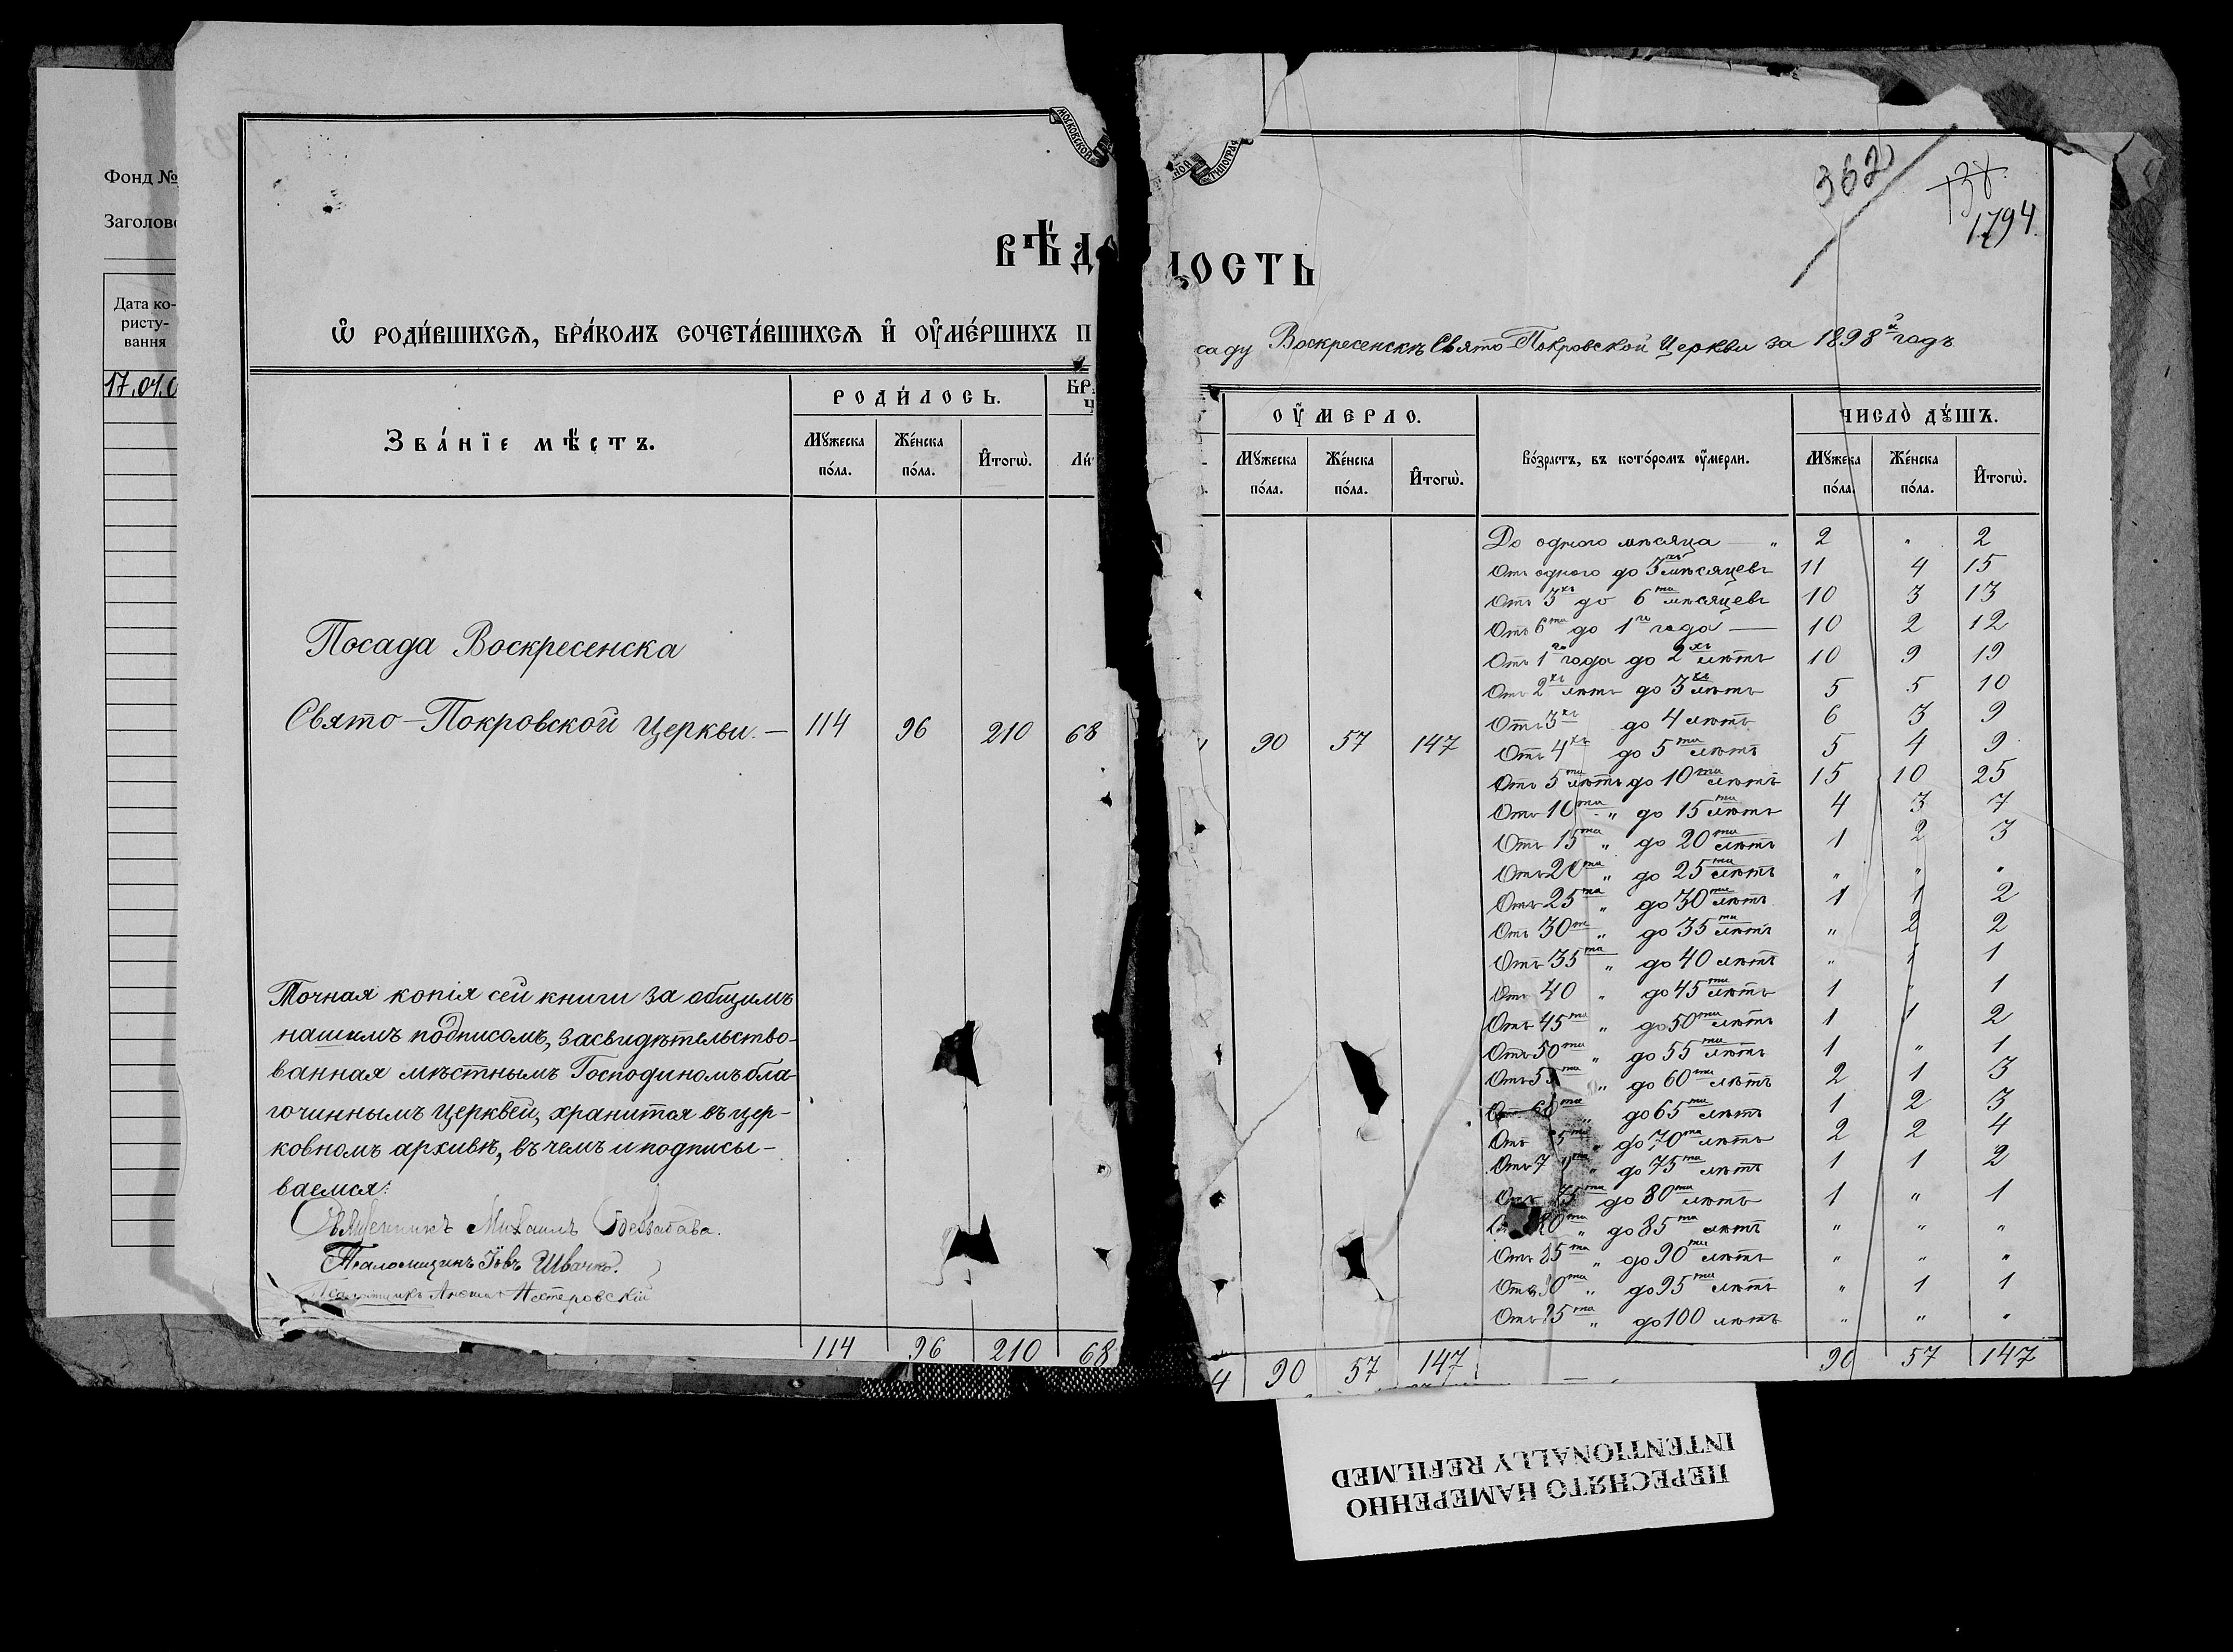 Фонд №
Заголово
Дата ко-
ристу-
вання
17.01.0
МОСКОВСКОЙ
ТИПОГРАФ
362
138
1794.
ВѢДО МОСТЬ
Ѡ РОДИ́ВШИХСѦ, БРА́КОМЪ СОЧЕТА́ВШИХСѦ И҆ ОУ҆МЕ́РШИХЪ П саду Воскресенскъ Свято-Покровской Церкви за 1898й годъ
Зва́нїе мѣ́стъ.
РОДИ́ЛОСЬ.
Мꙋ́жеска по́ла.
Же́нска по́ла.
И҆того̀.
БР
Ч
Ли
ОУ҆́МЕРЛО.
Мꙋ́жеска по́ла.
Же́нска по́ла.
И҆того̀.
Во́зрастъ, въ кото́ромъ оу҆́мерли.
ЧИСЛО̀ ДꙊ́ШЪ.
Мꙋ́жеска по́ла.
Же́нска по́ла.
И҆того̀.
Посада Воскресенска
Свято-Покровской Церкви. — 114 96 210 68
90 57 147
До одного мѣсяца — „ 2 „ 2
Отъ одного до 3хъ мѣсяцевъ 11 4 15
Отъ 3хъ до 6ти мѣсяцевъ 10 3 13
Отъ 6ти до 1го года — 10 2 12
Отъ 1го года до 2хъ лѣтъ 10 9 19
Отъ 2хъ лѣтъ до 3хъ лѣтъ 5 5 10
Отъ 3хъ до 4 лѣтъ 6 3 9
Отъ 4хъ до 5ти лѣтъ 5 4 9
Отъ 5ти лѣтъ до 10ти лѣтъ 15 10 25
Отъ 10ти „ до 15ти лѣтъ 4 3 7
Отъ 15ти „ до 20ти лѣтъ 1 2 3
Отъ 20ти „ до 25ти лѣтъ „ „ „
Отъ 25ти „ до 30ти лѣтъ 1 1 2
Отъ 30ти „ до 35ти лѣтъ „ 2 2
Отъ 35ти „ до 40 лѣтъ „ 1 1
Отъ 40 „ до 45ти лѣтъ 1 „ 1
Отъ 45ти „ до 50ти лѣтъ 1 1 2
Отъ 50ти „ до 55ти лѣтъ 1 „ 1
Отъ 55ти „ до 60ти лѣтъ 2 1 3
60ти „ до 65ти лѣтъ 1 2 3
Отъ 5ти „ до 70ти лѣтъ 2 2 4
Отъ 70ти „ до 75ти лѣтъ 1 1 2
Отъ 75ти до 80ти лѣтъ 1 „ 1
80ти „ до 85ти лѣтъ „ „ „
Отъ 85ти „ до 90ти лѣтъ „ „ „
Отъ 90ти „ до 95ти лѣтъ „ 1 1
Отъ 95ти „ до 100 лѣтъ „ „ „
Точная копія сей книги за общимъ
нашимъ подписомъ, засвидѣтельство-
ванная мѣстнымъ Господиномъ бла-
гочиннымъ Церквей, хранится въ цер-
ковномъ архивѣ, въ чемъ и подписы-
ваемся:
Священникъ Михаилъ
Псаломщикъ Іовъ Швачко.
Псаломщикъ Нестеровскій
114 96 210 68
4 90 57 147 90 57 147
ПЕРЕСНЯТО НАМЕРЕННО
INTENTIONALLY REFILMED